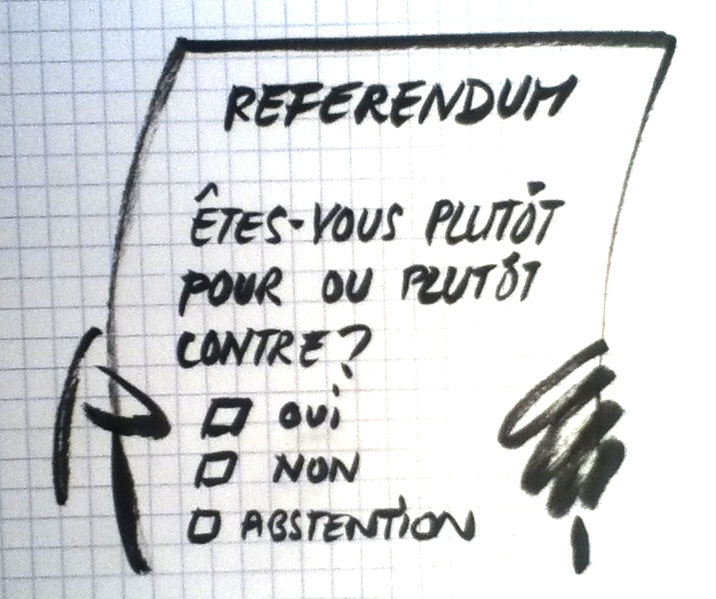 REFERENDUM
ÊTES-VOUS PLUTÔT
POUR OU PLUTÔT
CONTRE?
OUi
NON
ABSTENTiON